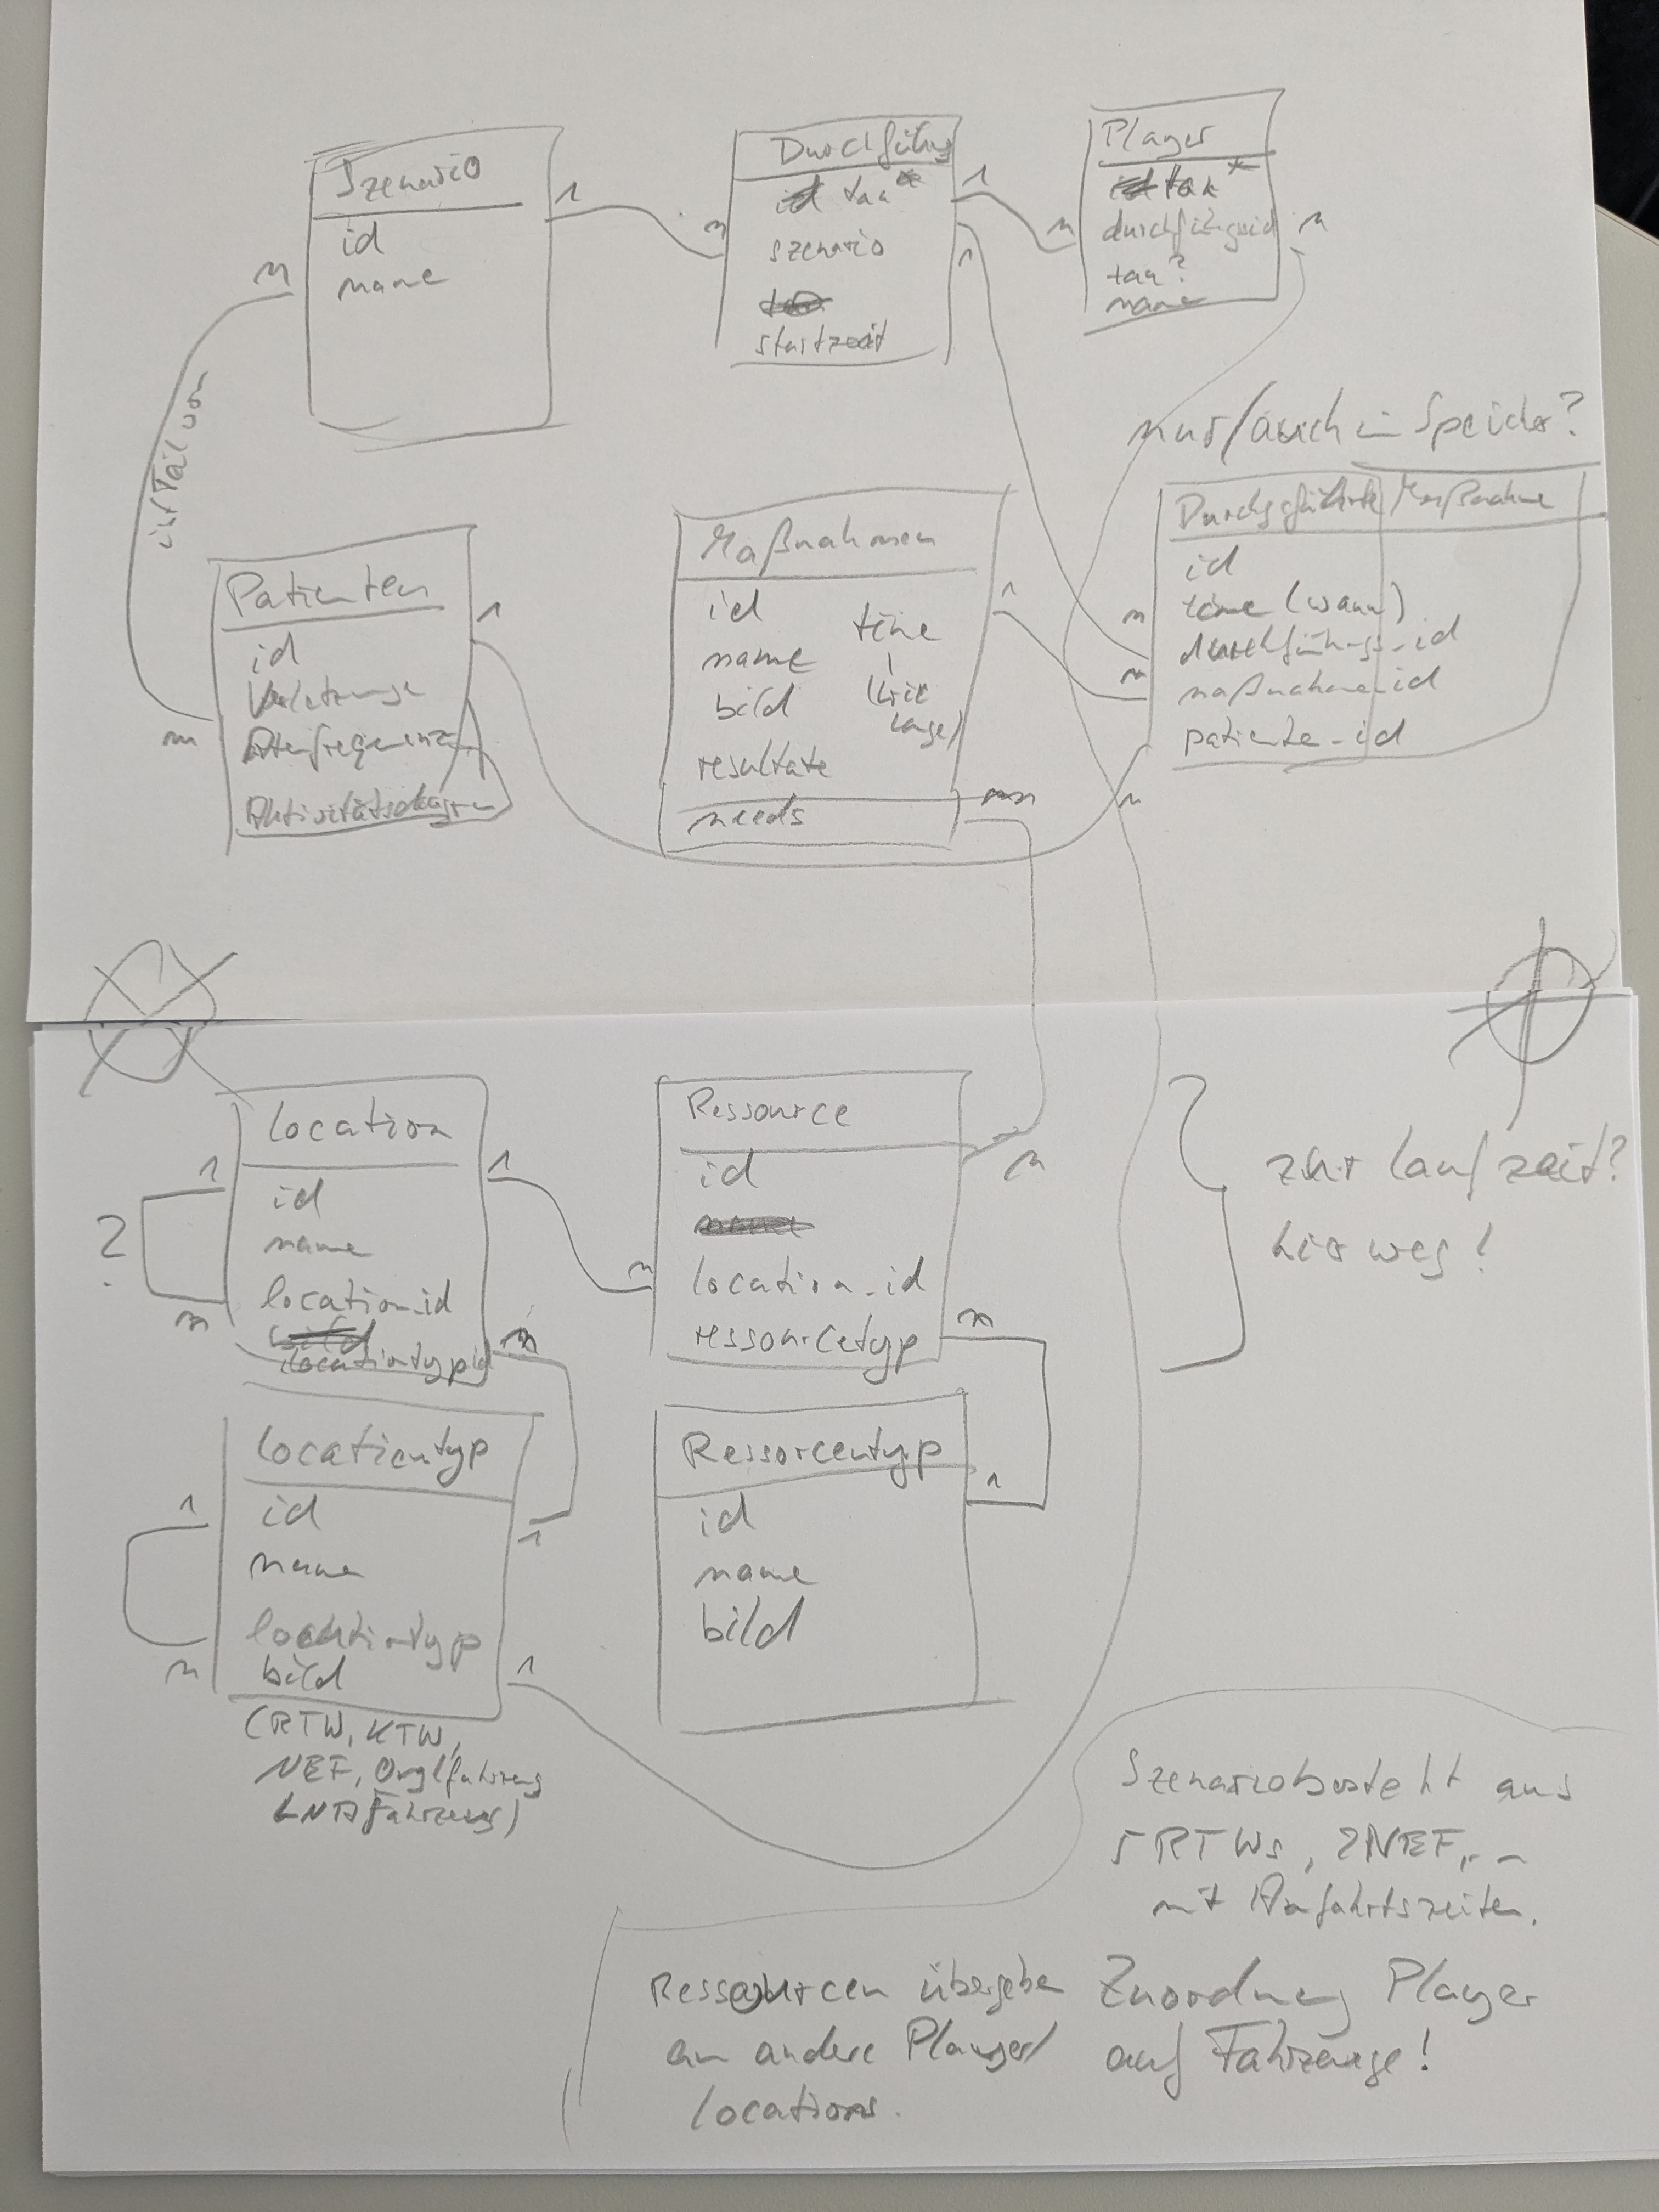 Szenario
id
name
1
n
Durchführung
id tan*
szenario
startzeit
1
n
1
Player
id tan*
durchführungsid
tan?
name
n
n
m
ist Teil von
nur/auch in Speicher?
Patienten
id
Verletzunge
Atemfrequenz
Aktivitätsdiagramm
1
Maßnahmen
id
name
bild
time
(wie
lange)
resultate
needs
1
Durchgeführte Maßnahme
id
time (wann)
durchführungs_id
maßnahme_id
patiente_id
n
n
n
Location
id
name
location_id
bild
locationtypid
1
?
n
1
n
Ressource
id
name
location_id
ressourcetyp
n
n
zur Laufzeit?
hier weg!
Locationtyp
id
name
locationtyp
bild
1
n
1
1
(RTW, KTW,
NEF, Orglfahrzeug
LNA Fahrzeug)
Ressorcentyp
id
name
bild
1
Szenario besteht aus
5 RTWs, 2NEF, --
mit Anfahrtszeiten.
Ressourcen übergeben
an andere Player/
locations.
Zuordnung Player
auf Fahrzeuge!